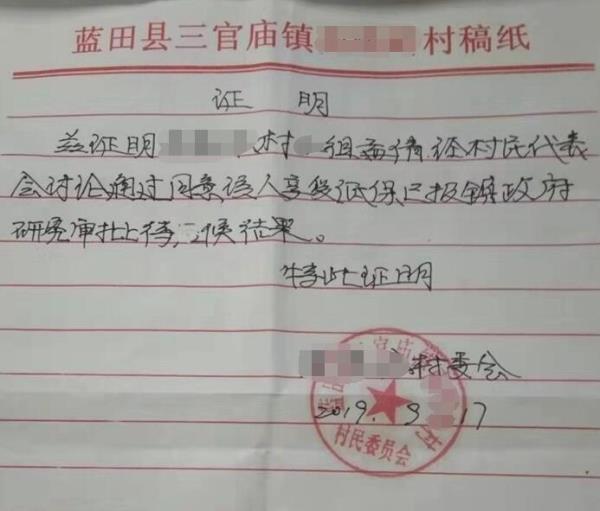 蓝田县三官庙镇 村稿纸
证 明
兹证明 村 组 经村民代表
会讨论通过同意该人享受低保已报镇政府
研究审批上待、候结果。
特此证明
村委会
2019. 9. 17
村民委员会